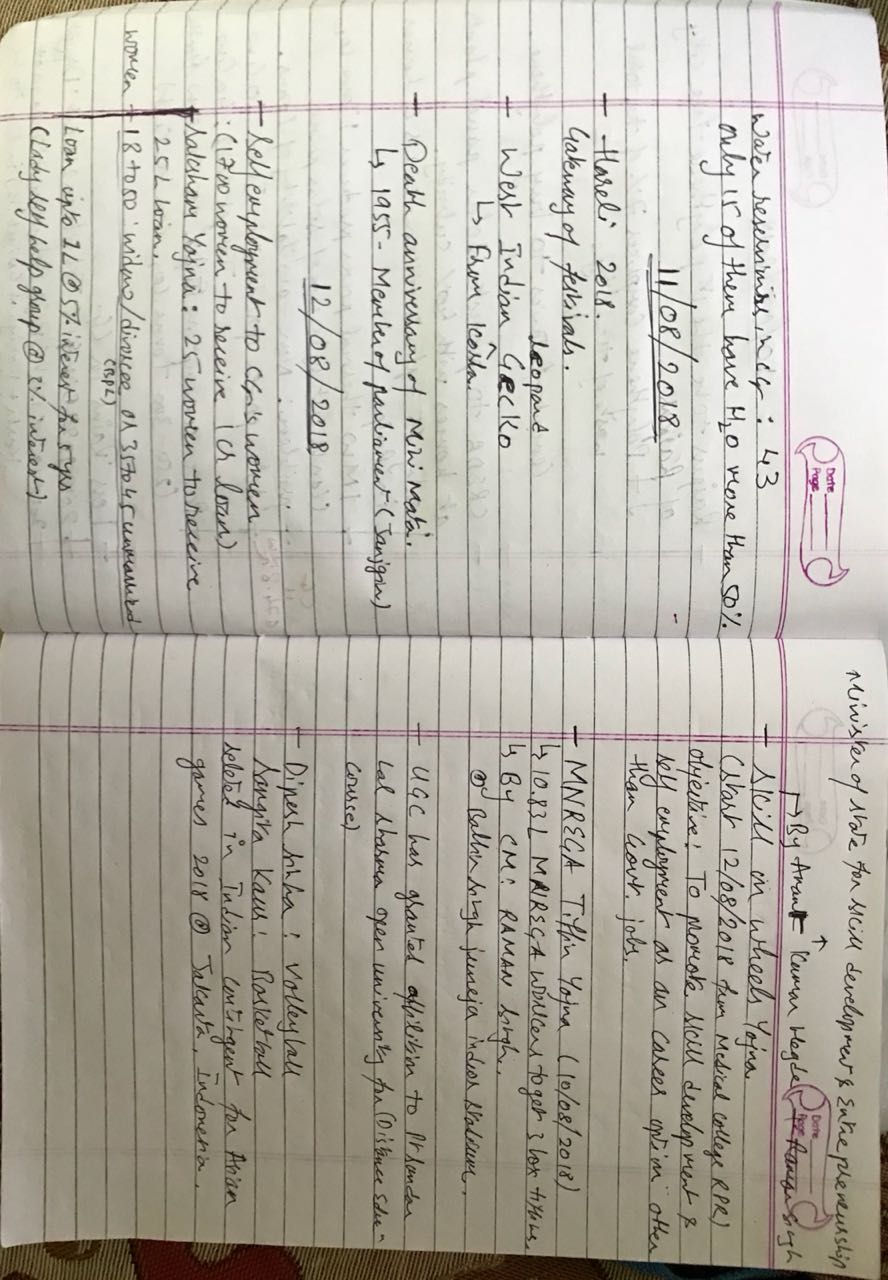 Date
Page
Water reservoirs in CG : 43
only 15 of them have H2O more than 50%.
11/08/2018
— Hareli 2018.
Gateway of festivals.
leopard
— West Indian GECKO
↳ From
— Death anniversary of Mini Mata.
↳ 1955 - Member of parliament (Janjgir)
12/08/2018
— Self employment to CG's women
(1700 women to receive 1 Cr loan)
— Saksham Yojna : 25 women to receive
25 L loan.
women - 18 to 50 widow/divorcee or 35 to 45 unmarried
(BPL)
Loan upto 1L @ 5% interest for 5 yrs
(Lady self help group @ 3% interest)
Minister of state for skill development & Entrepheneurship
Date
Page
↳ By Anant Kumar Hegde & Raman Singh
— Skill on wheels Yojna
(Start 12/08/2018 from Medical college RPR)
objective: To promote skill development &
self employment as an career option other
than Govt. jobs.
— MNREGA Tiffin Yojna (10/08/2018)
↳ 10.83L MNREGA workers to get 3 box tiffins.
↳ By CM : RAMAN Singh.
@ Balbir Singh Juneja indoor stadium.
— UGC has granted to Pt Sundar
Lal Sharma open university for (Distance Edu-
course)
— Dipesh Sinha : Volleyball
Sangita Kaur : Basketball
in Indian contingent for Asian
games 2018 @ Jakarta, Indonesia.